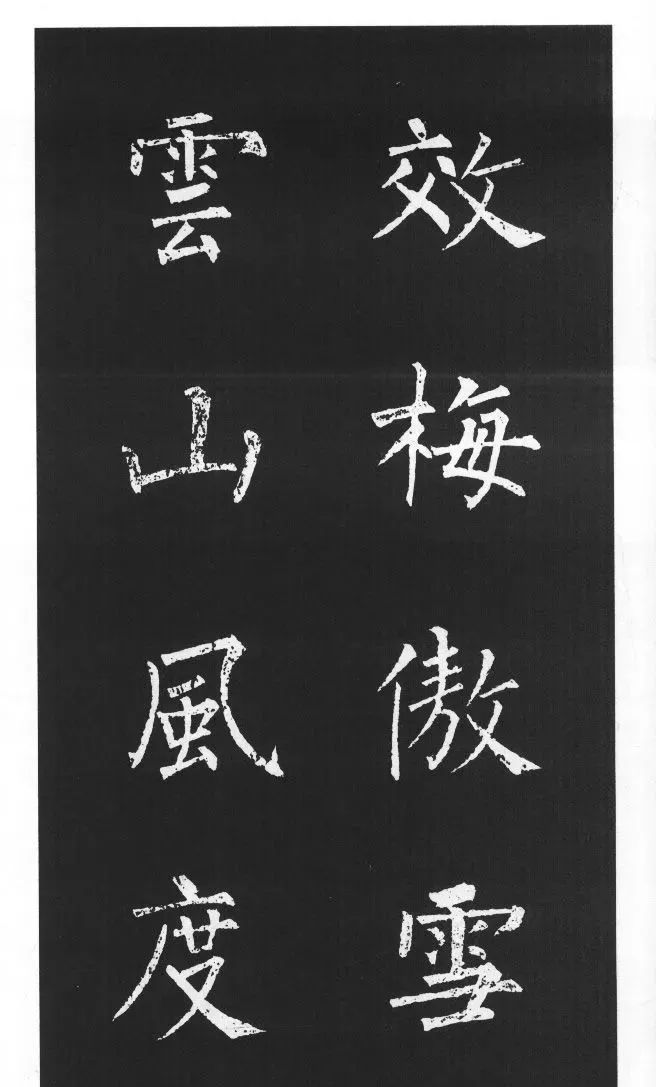 效梅傲雪
雲山風度